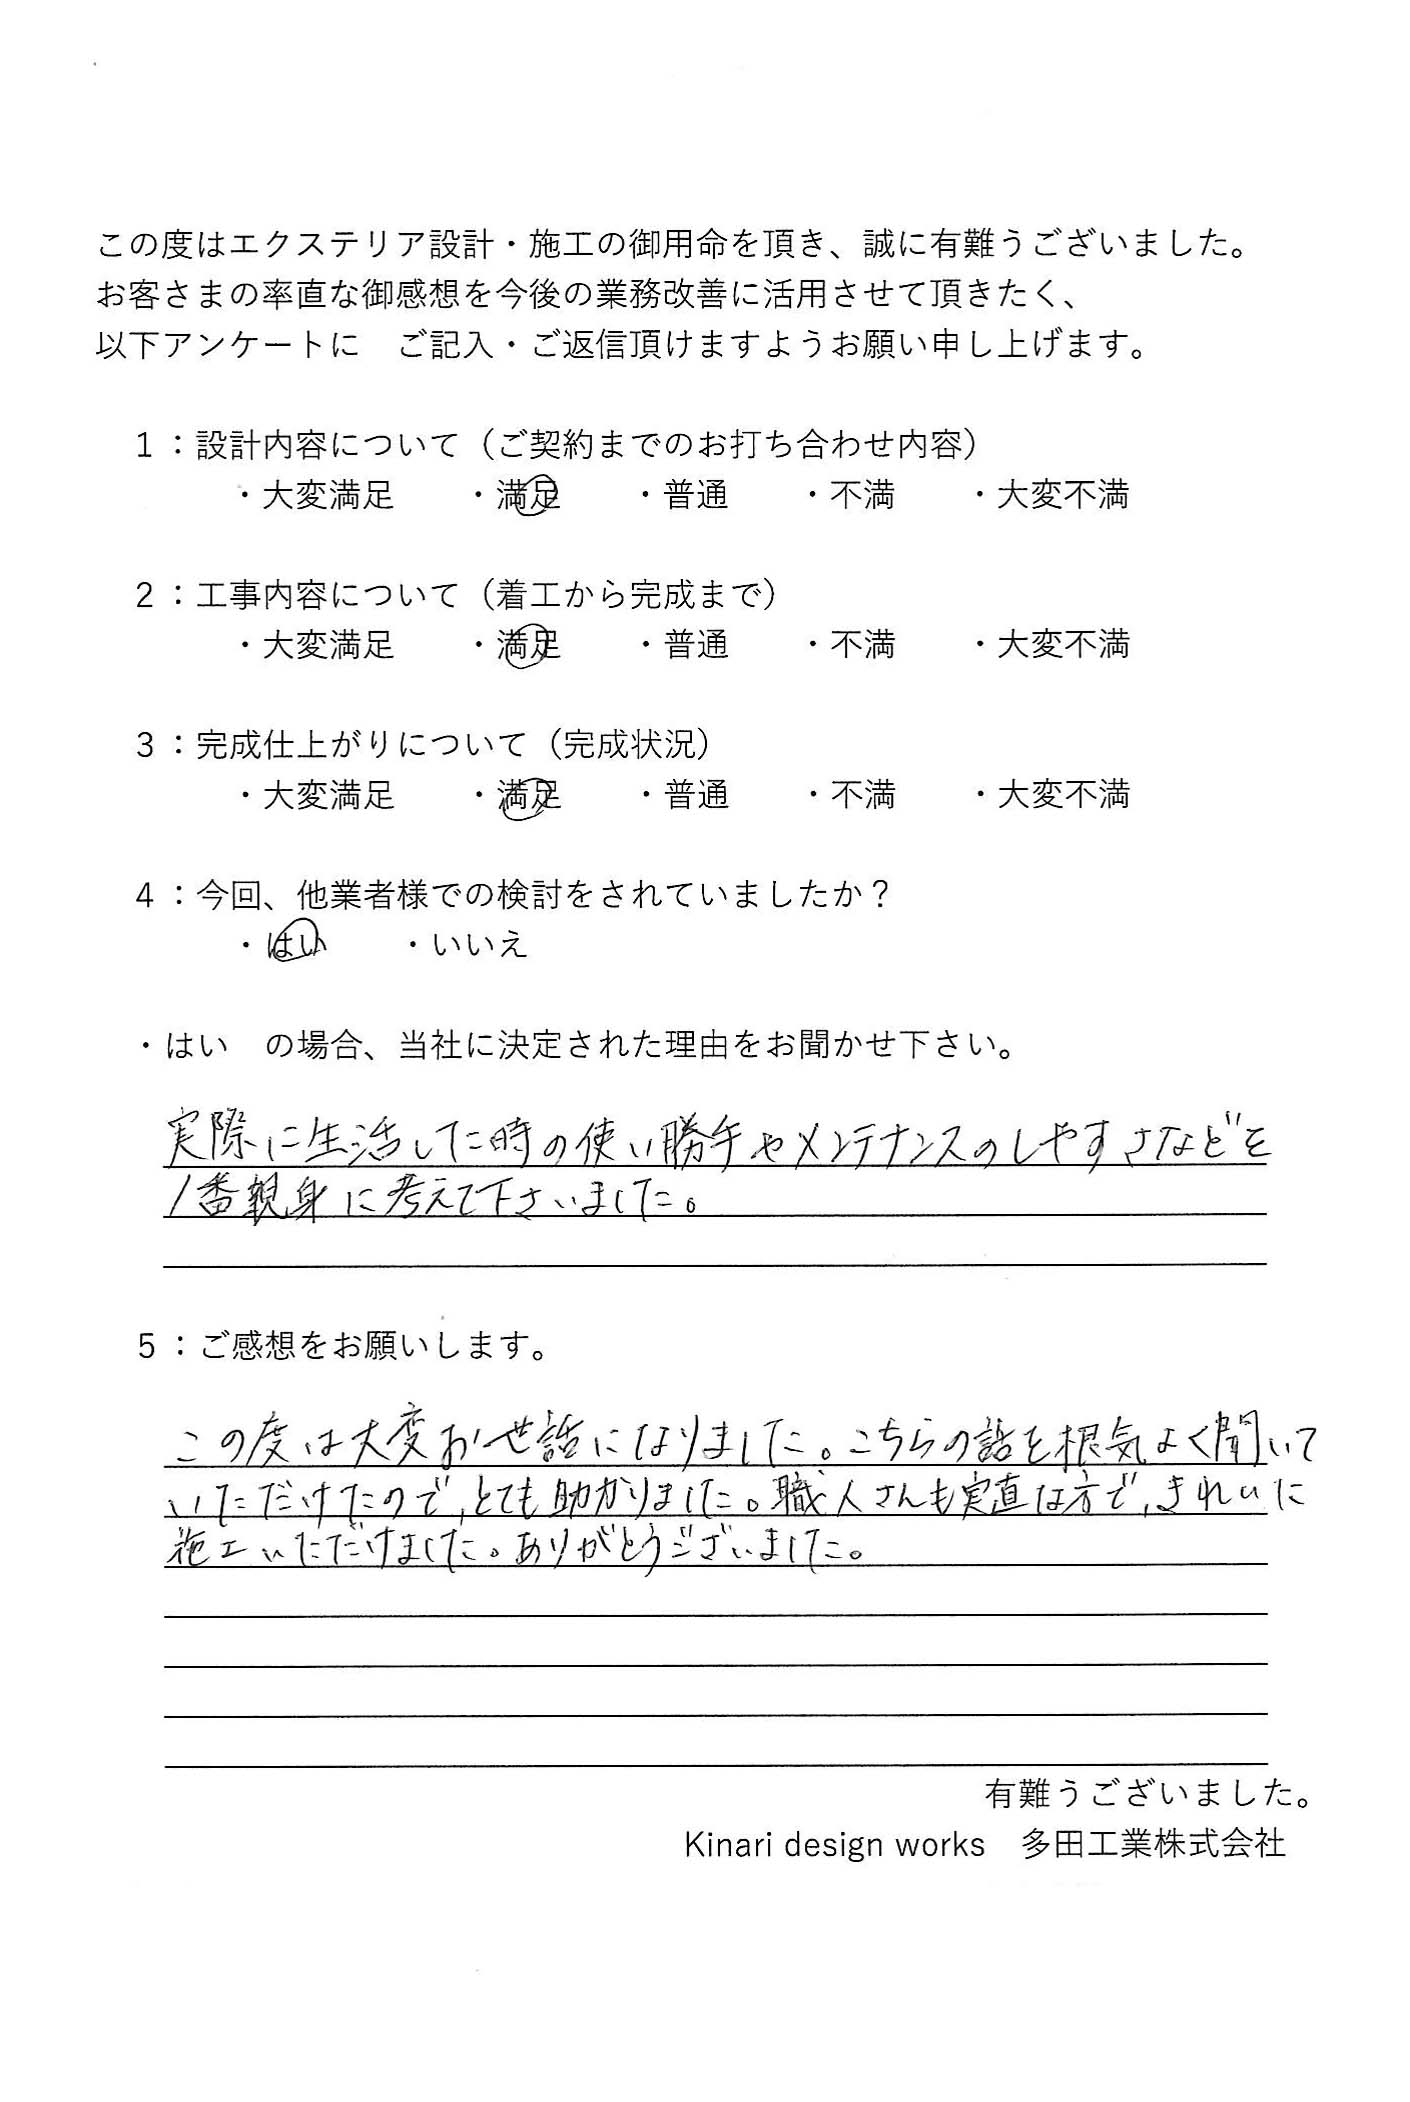 この度はエクステリア設計・施工の御用命を頂き、誠に有難うございました。
お客さまの率直な御感想を今後の業務改善に活用させて頂きたく、
以下アンケートに　ご記入・ご返信頂けますようお願い申し上げます。
1：設計内容について（ご契約までのお打ち合わせ内容）
・大変満足　・満足　・普通　・不満　・大変不満
2：工事内容について（着工から完成まで）
・大変満足　・満足　・普通　・不満　・大変不満
3：完成仕上がりについて（完成状況）
・大変満足　・満足　・普通　・不満　・大変不満
4：今回、他業者様での検討をされていましたか？
・はい　・いいえ
・はい　の場合、当社に決定された理由をお聞かせ下さい。
実際に生活した時の使い勝手やメンテナンスのしやすさなどを
1番親身に考えて下さいました。
5：ご感想をお願いします。
この度は大変お世話になりました。こちらの話を根気よく聞いて
いただけたので、とても助かりました。職人さんも実直な方で、きれいに
施工いただけました。ありがとうございました。
有難うございました。
Kinari design works　多田工業株式会社